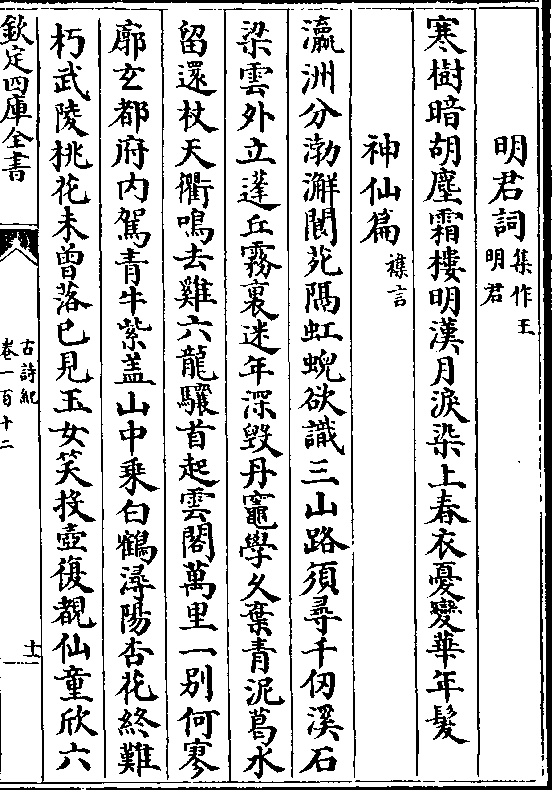 明君詞集作王
明君
寒樹暗胡塵霜樓明漢月淚染上春衣憂變華年髮
神仙篇襍言
瀛洲分渤澥閬苑隔虹蜺欲識三山路須尋千仞溪石
梁雲外立蓬丘霧裏迷年深毀丹竈學久棄青泥葛水
留還杖天衢鳴去雞六龍驤首起雲閣萬里一別何寥
廓玄都府内駕青牛紫盖山中乗白鶴潯陽杏花終難
朽武陵桃花未曽落已見玉女笑投壺復覩仙童欣六
欽定四庫全書
古詩紀
卷一百十二
十一